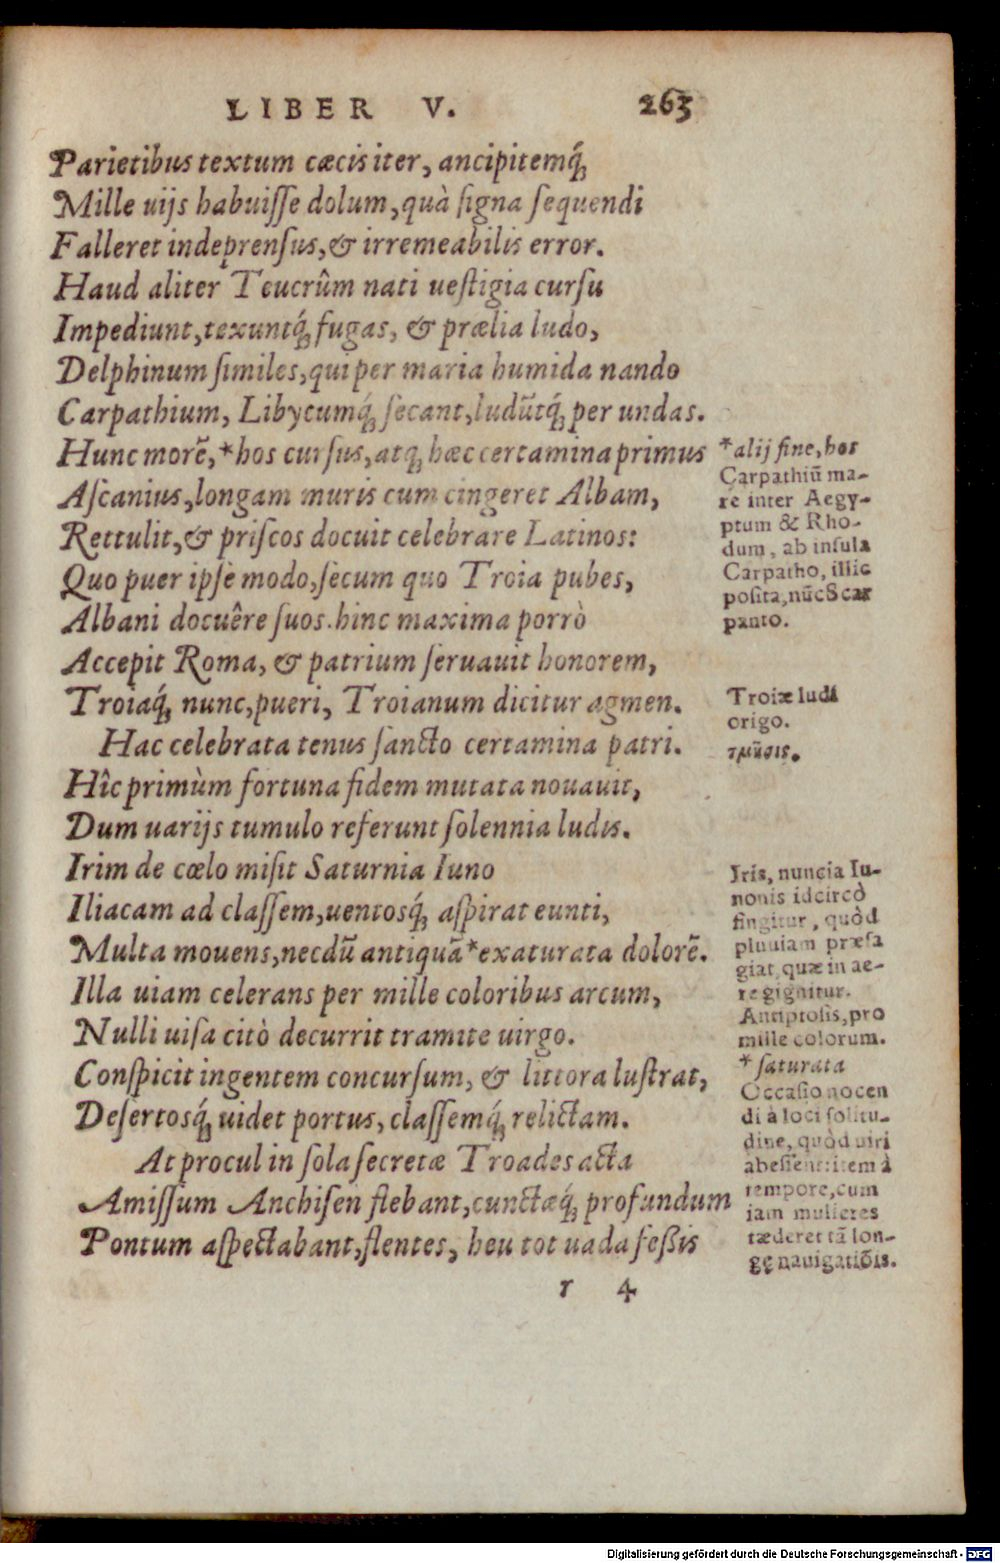 LIBER V. 263
Parietibus textum cæcis iter, ancipitemq́;
Mille uijs habuisse dolum, quà signa sequendi
Falleret indeprensus, & irremeabilis error.
Haud aliter Teucrûm nati uestigia cursu
Impediunt, texuntq́; fugas, & prælia ludo,
Delphinum similes, qui per maria humida nando
Carpathium, Libycumq́; secant, ludũtq́; per undas.
Hunc morẽ, *hos cursus, atq; hæc certamina primus
Ascanius, longam muris cum cingeret Albam,
Rettulit, & priscos docuit celebrare Latinos:
Quo puer ipse modo, secum quo Troia pubes,
Albani docuêre suos. hinc maxima porrò
Accepit Roma, & patrium seruauit honorem,
Troiaq́; nunc, pueri, Troianum dicitur agmen.
Hac celebrata tenus sancto certamina patri.
Hîc primùm fortuna fidem mutata nouauit,
Dum uarijs tumulo referunt solennia ludis.
Irim de cœlo misit Saturnia Iuno
Iliacam ad classem, uentosq́; aspirat eunti,
Multa mouens, necdũ antiquã *exaturata dolorẽ.
Illa uiam celerans per mille coloribus arcum,
Nulli uisa citò decurrit tramite uirgo.
Conspicit ingentem concursum, & littora lustrat,
Desertosq́; uidet portus, classemq́; relictam.
At procul in sola secretæ Troades acta
Amissum Anchisen flebant, cunctæq́; profundum
Pontum aspectabant, flentes, heu tot uada fessis
r 4
*alij fine, hos
Carpathiũ ma-
re inter Aegy-
ptum & Rho-
dum, ab insula
Carpatho, illic
posita, nũc Scar
panto.
Troiæ ludi
origo.
τμῆσις.
Iris, nuncia Iu-
nonis idcircò
fingitur, quòd
pluuiam præsa
giat, quæ in ae-
re gignitur.
Antiptosis, pro
mille colorum.
* saturata
Occasio nocen
di à loci solitu-
dine, quòd uiri
abessent: item à
tempore, cum
iam mulieres
tæderet tã lon-
gę nauigatiõis.
Digitalisierung gefördert durch die Deutsche Forschungsgemeinschaft - DFG